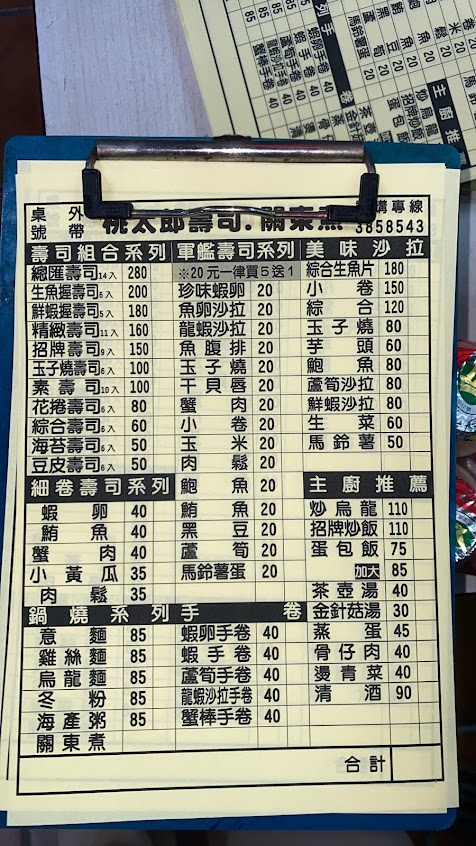 桌號 外帶 桃太郎壽司．關東煮 購專線 3858543
壽司組合系列 軍艦壽司系列 美味沙拉
總匯壽司14入 280 ※20元一律買5送1 綜合生魚片 180
生魚握壽司6入 200 珍味蝦卵 20 小卷 150
鮮蝦握壽司5入 180 魚卵沙拉 20 綜合 120
精緻壽司11入 160 龍蝦沙拉 20 玉子燒 80
招牌壽司9入 150 魚腹排 20 芋頭 60
玉子燒壽司6入 100 玉子燒 20 鮑魚 80
素壽司10入 100 干貝唇 20 蘆筍沙拉 80
花捲壽司6入 80 蟹肉 20 鮮蝦沙拉 80
綜合壽司6入 60 小卷 20 生菜 60
海苔壽司6入 50 玉米 20 馬鈴薯 50
豆皮壽司6入 50 肉鬆 20
細卷壽司系列 鮑魚 20 主廚推薦
蝦卵 40 鮪魚 20 炒烏龍 110
鮪魚 40 黑豆 20 招牌炒飯 110
蟹肉 40 蘆筍 20 蛋包飯 75
小黃瓜 35 馬鈴薯蛋 20 加大 85
肉鬆 35 茶壺湯 40
鍋燒系列 手卷 金針菇湯 30
意麵 85 蝦卵手卷 40 蒸蛋 45
雞絲麵 85 蝦手卷 40 骨仔肉 40
烏龍麵 85 蘆筍手卷 40 燙青菜 40
冬粉 85 龍蝦沙拉手卷 40 清酒 90
海產粥 85 蟹棒手卷 40
關東煮
合計